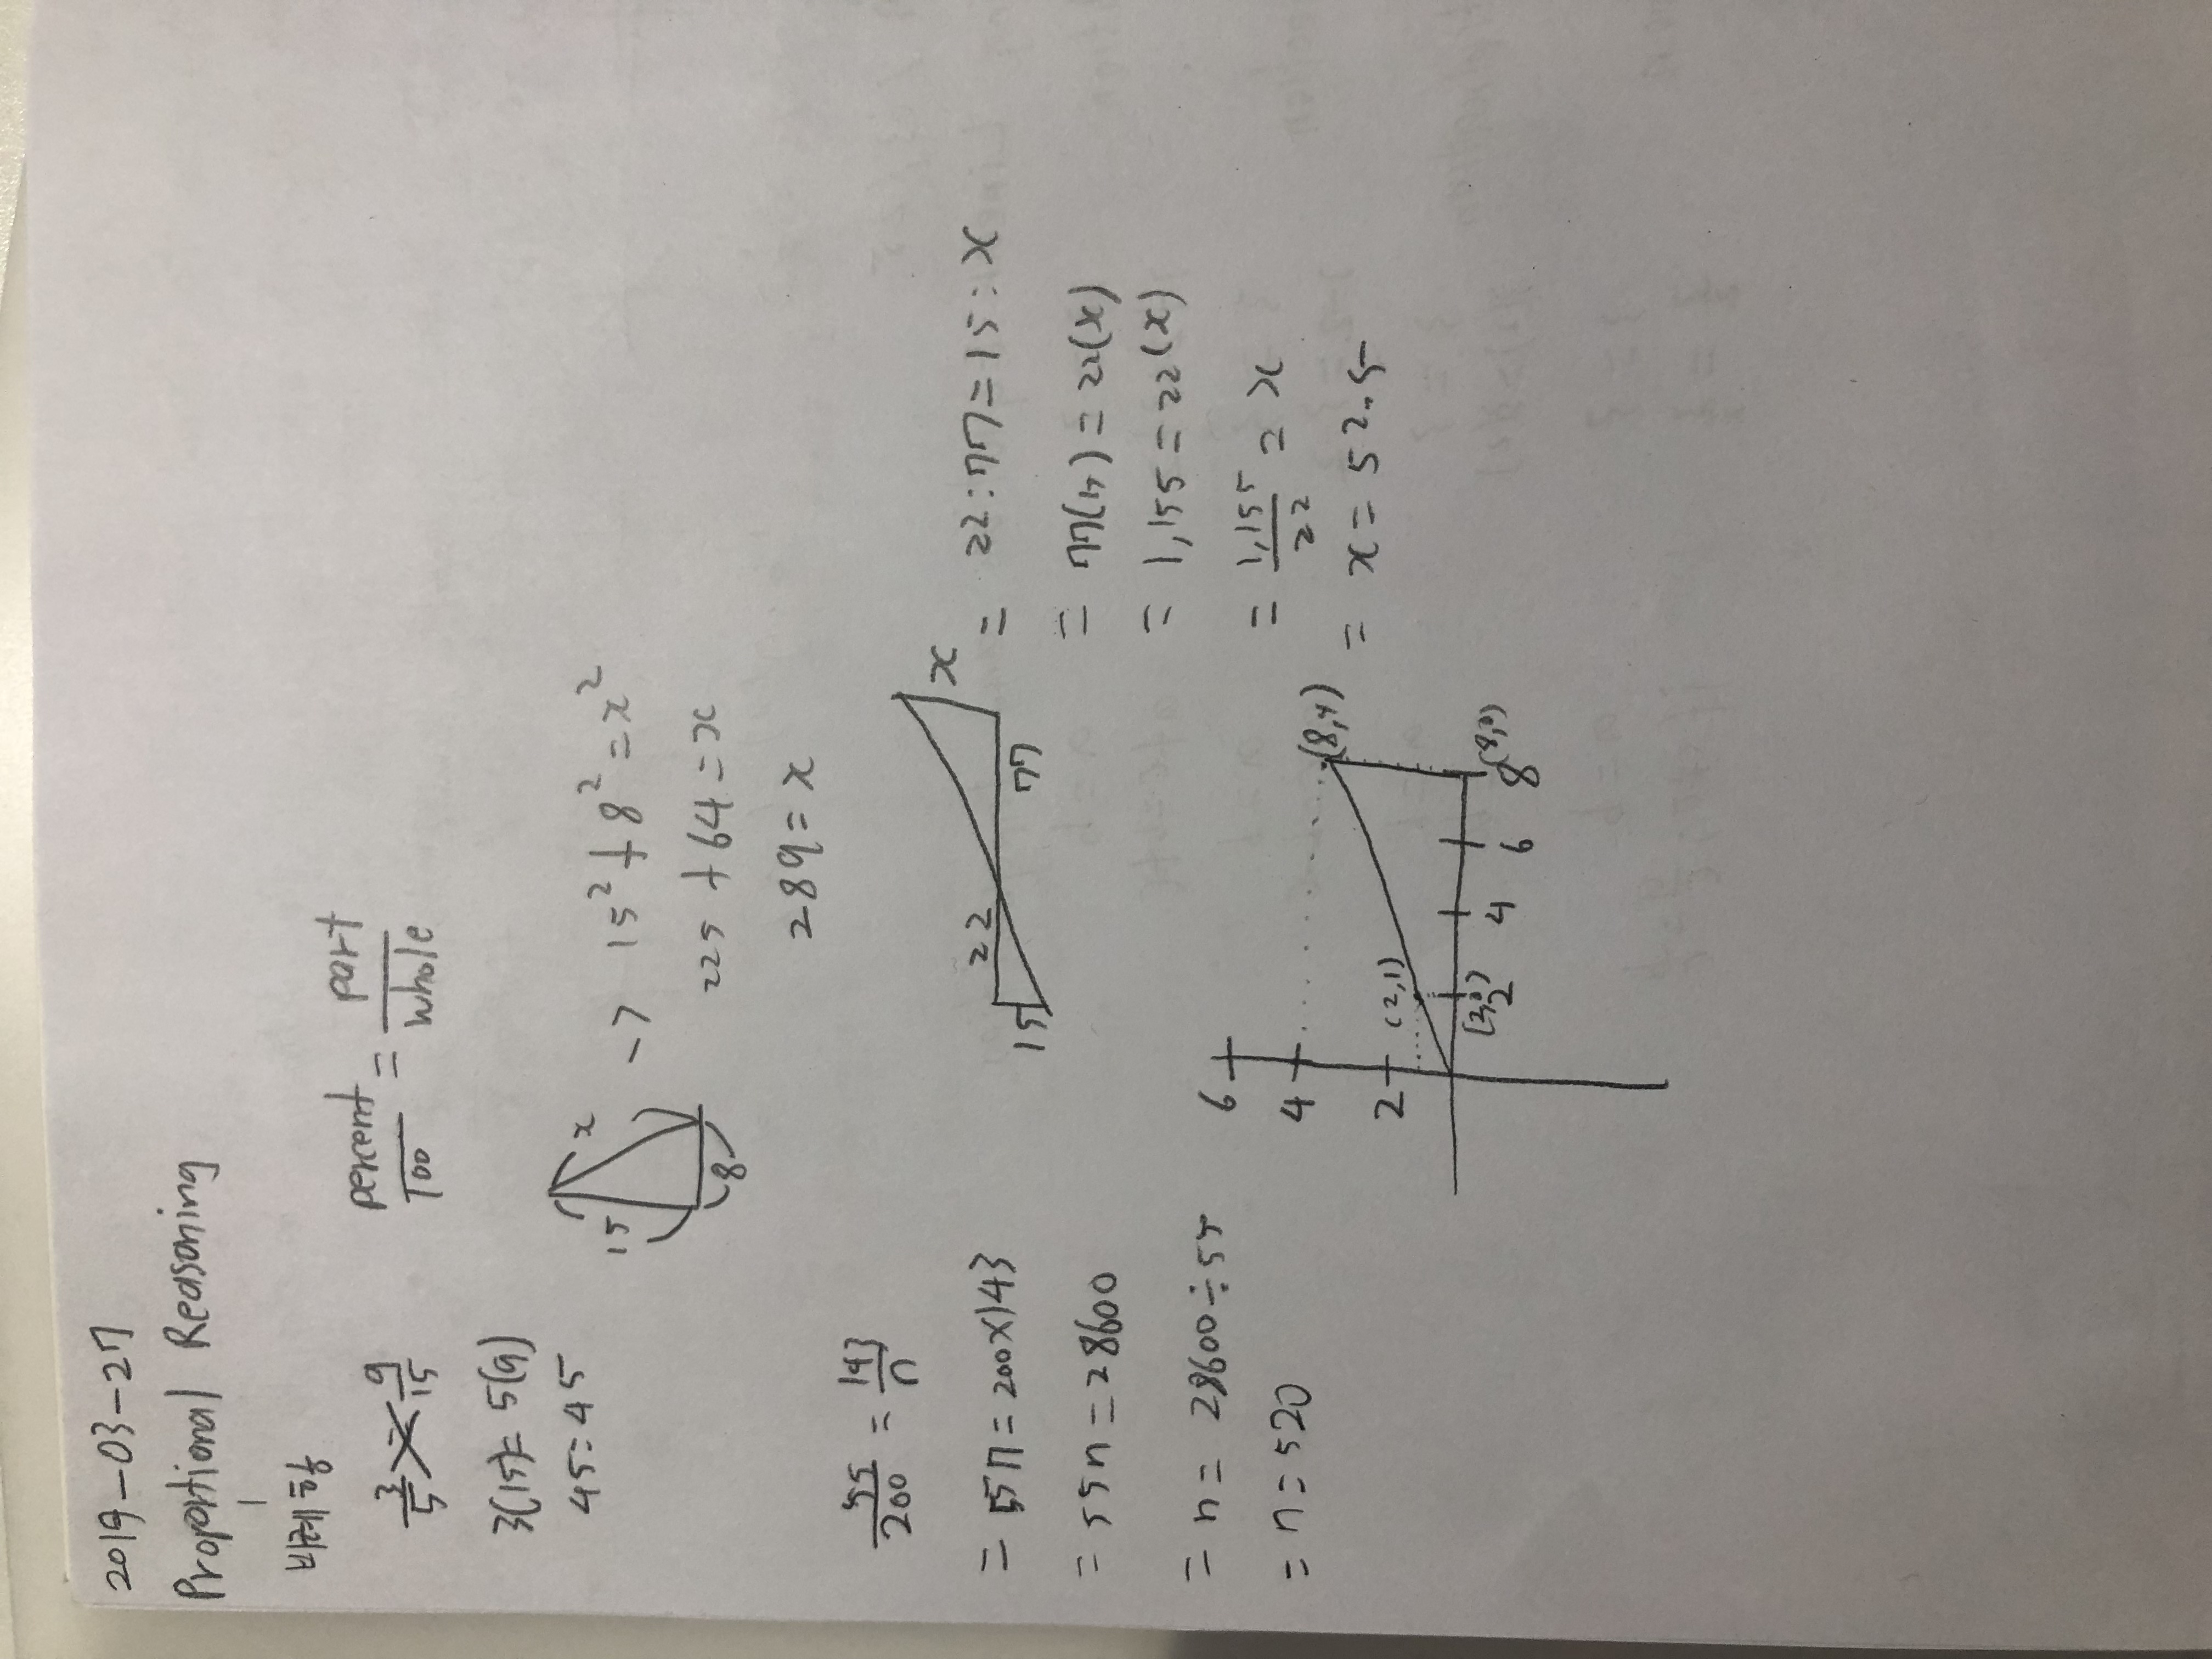 2019-03-27
Proportional Reasoning
비례항
3/5 = 9/15
percent/100 = part/whole
3(15)= 5(9)
45=45
15
x
8
-7 15²+8²=x²
225+64=x
289=x
55/200 = 143/n
= 55n=200x143
= 55n=28600
= n=28600÷55
= n=520
15
22
77
x
= 22:77=15:x
= 77(15)=22(x)
= 1,155=22(x)
= 1,155/22 = x
= x=52.5
6
4
2
(2,1)
(8,4)
(8,0)
2
4
6
8